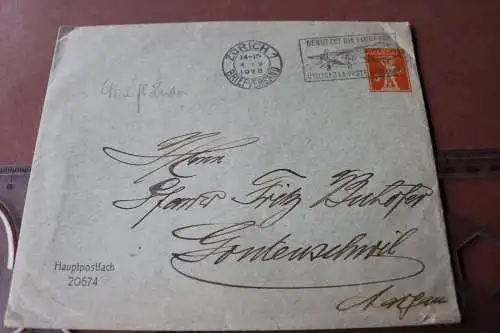 ZÜRICH 1
14-15
4 IV
1928
BRIEFVERSAND
BENÜTZET DIE FLUGPOST
UTILISEZ LA POSTE
Herrn
Pfarrer Fritz Buhofer
Gontenschwil
Aargau
Hauptpostfach
20674